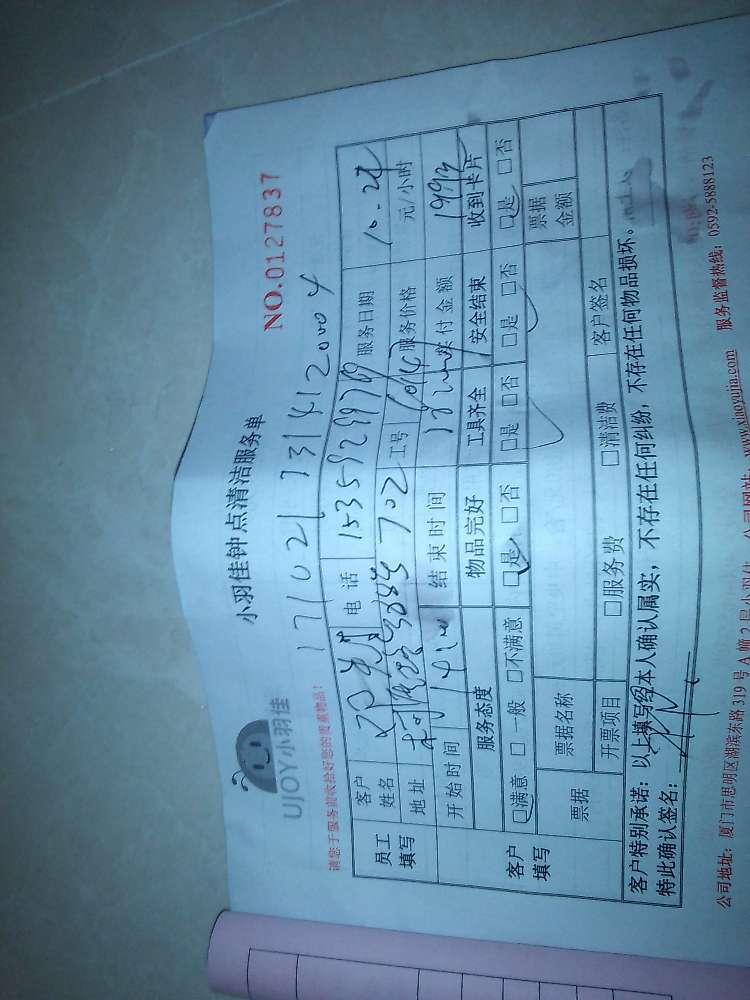 UJOY小羽佳
小羽佳钟点清洁服务单
NO.0127837
请您于服务前收拾好您的贵重物品!
1710217314120004
员工填写
客户姓名 电话 服务日期 10.28
地址 702 工号 服务价格 元/小时
开始时间 结束时间 实付金额
客户填写
服务态度 物品完好 工具齐全 安全结束 收到卡片
□满意 □一般 □不满意 □是 □否 □是 □否 □是 □否 □是 □否
票据 票据名称 票据金额
开票项目 □服务费 □清洁费 客户签名
客户特别承诺:以上填写经本人确认属实,不存在任何纠纷,不存在任何物品损坏。
特此确认签名:
公司地址:厦门市思明区湖滨东路319号A幢2层小羽佳 公司网站:www.xiaoyujia.com 服务监督热线:0592-5888123